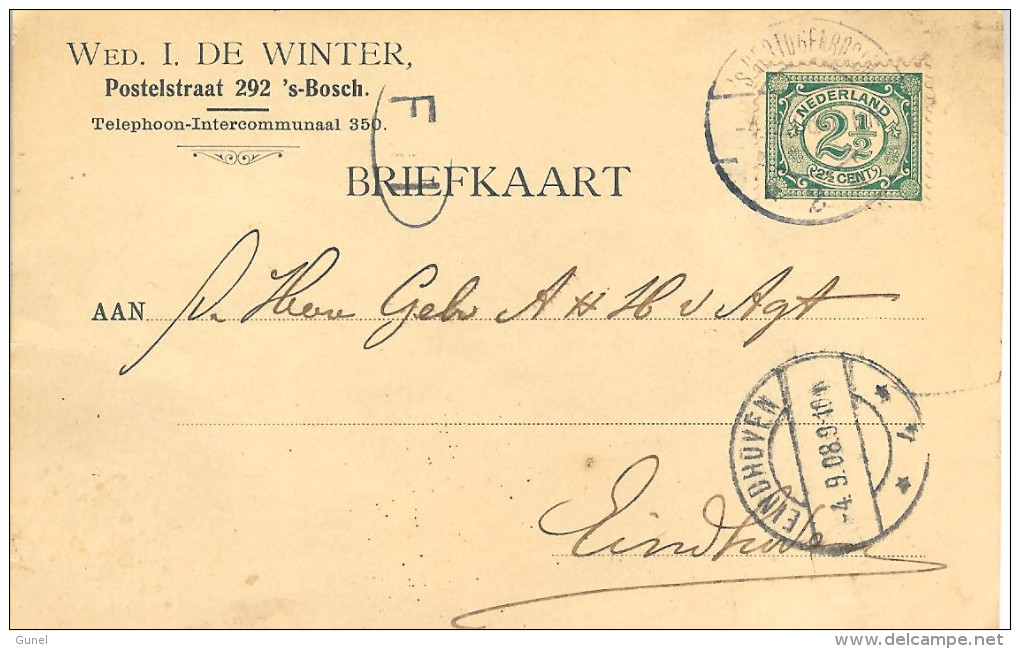 WED. I. DE WINTER,
Postelstraat 292 's-Bosch.
Telephoon-Intercommunaal 350.
F
BRIEFKAART
NEDERLAND
2½
2½ CENT
AAN Heeren Gebr A & H v Agt
Eindhoven
EINDHOVEN
-4.9.08.9-10
4
Gunel
www.delcampe.net